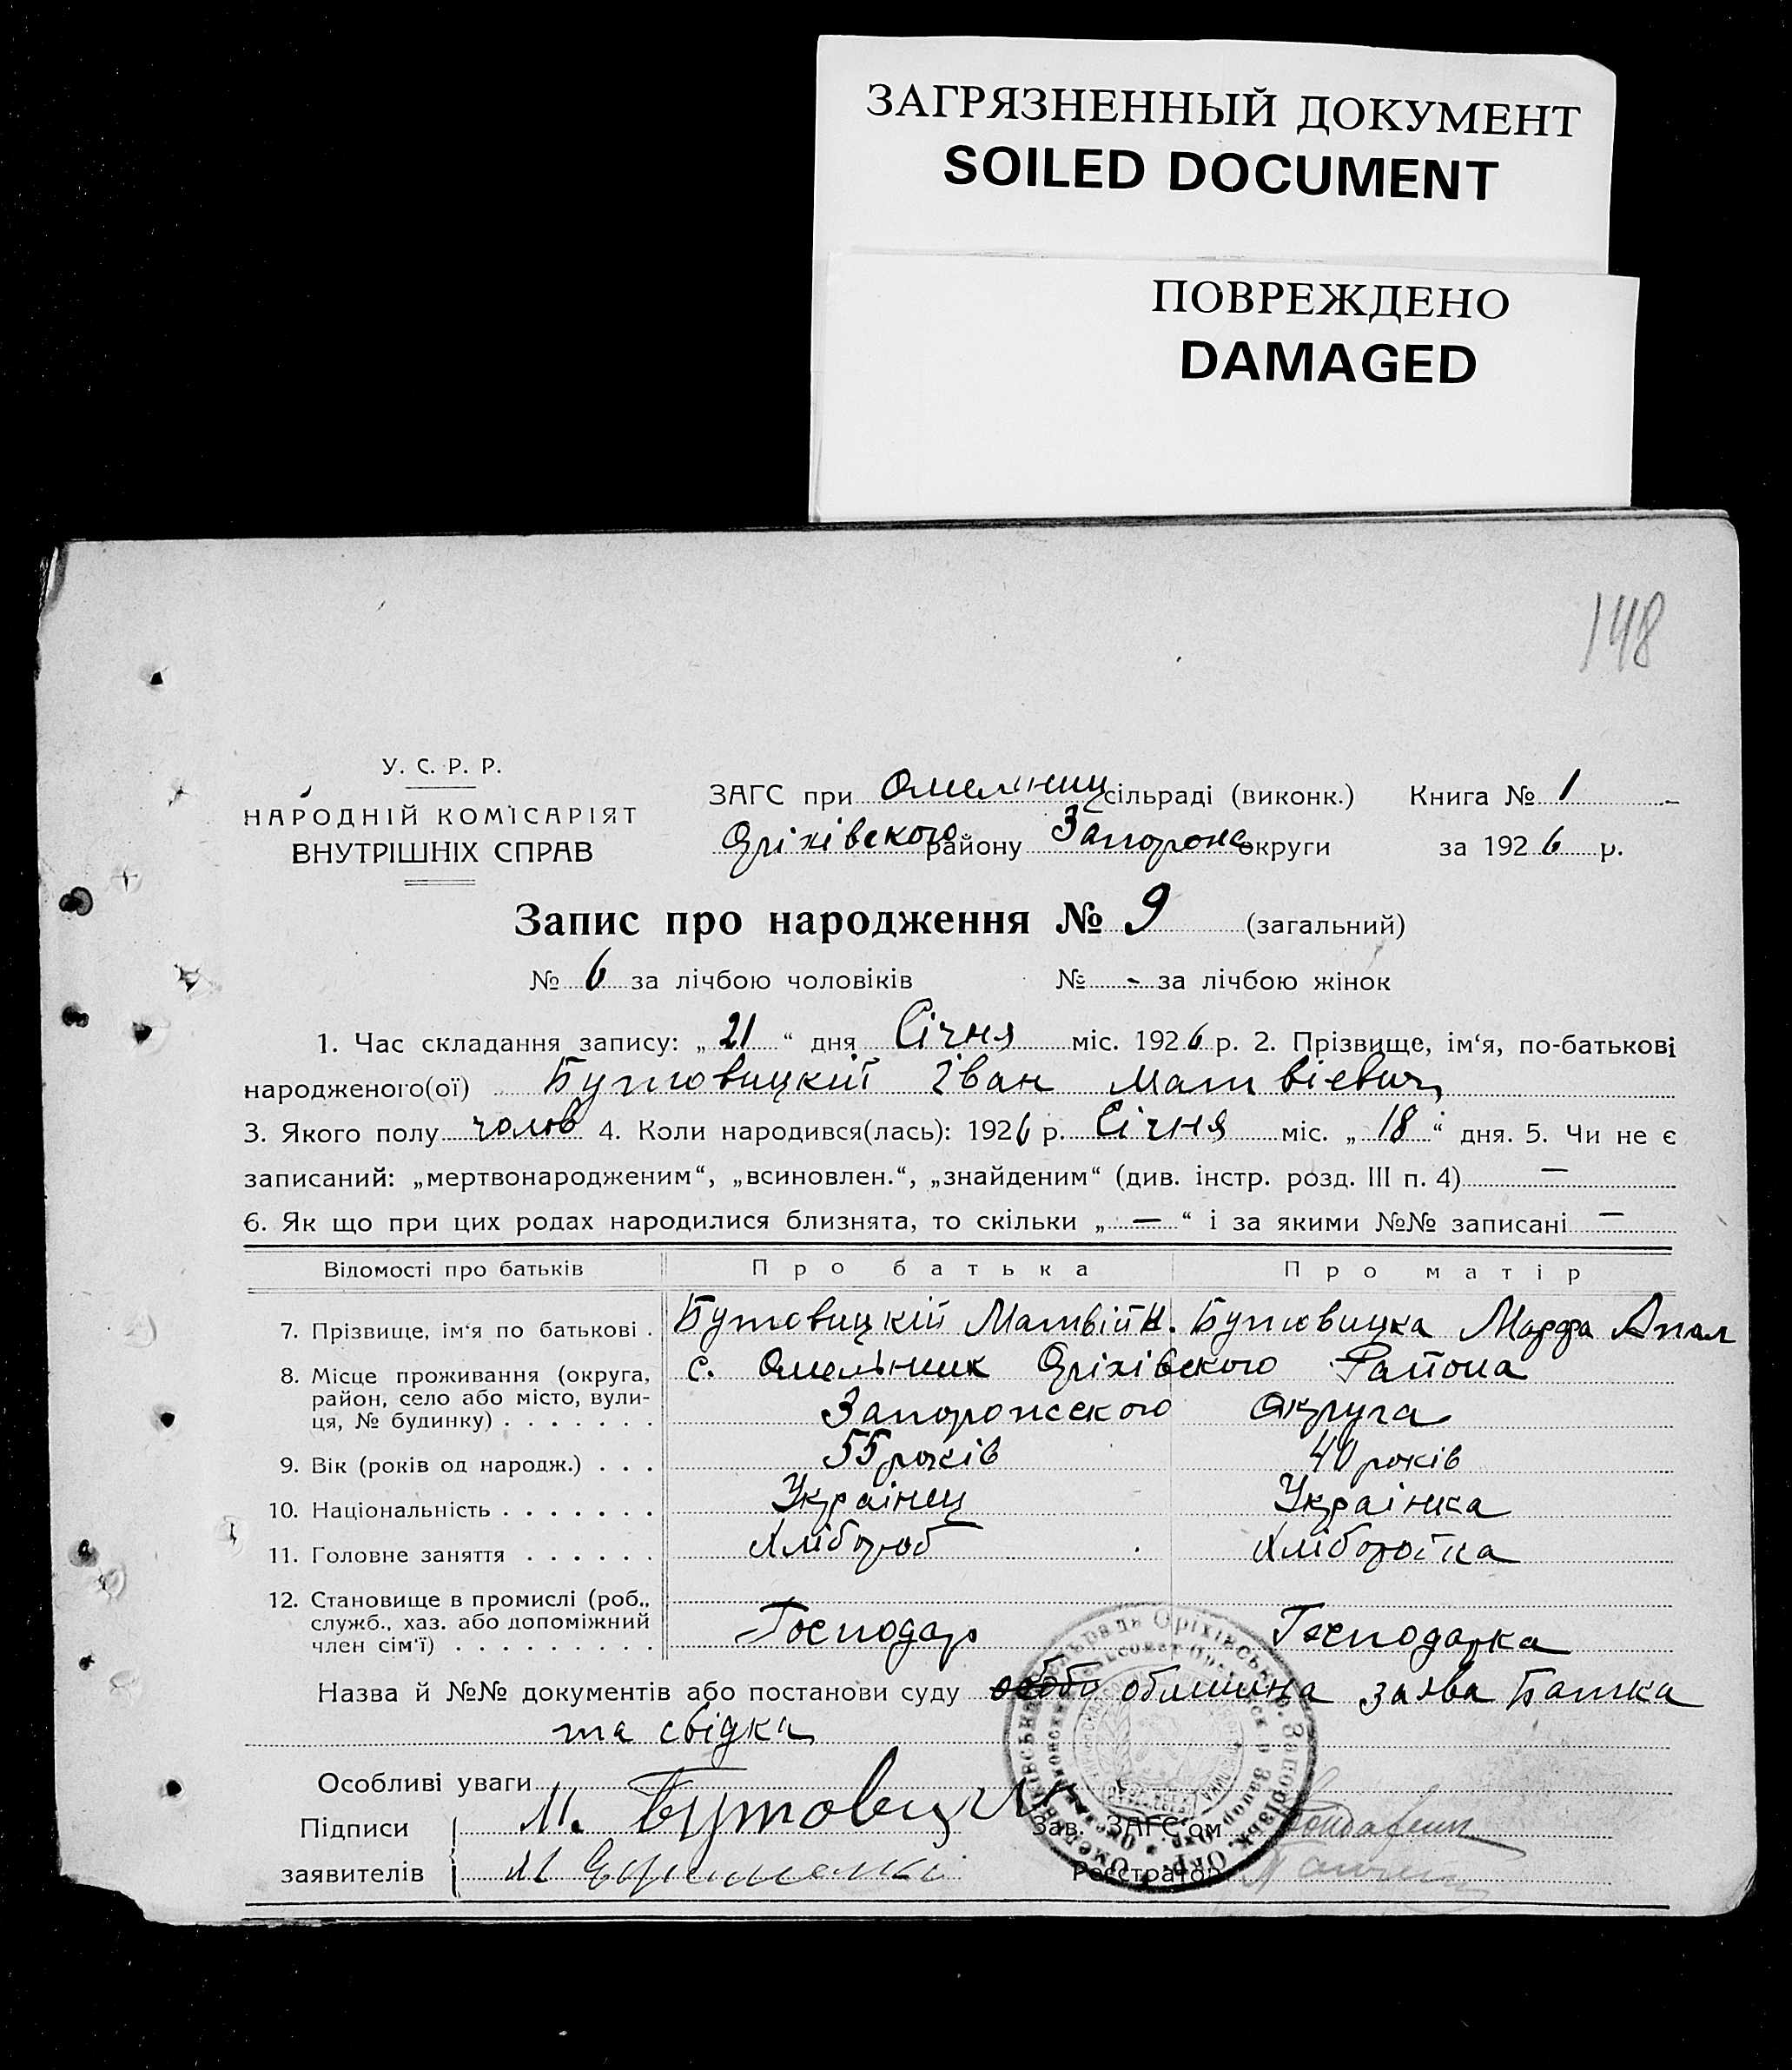 ЗАГРЯЗНЕННЫЙ ДОКУМЕНТ
SOILED DOCUMENT
ПОВРЕЖДЕНО
DAMAGED
148
У. С. Р. Р.
НАРОДНІЙ КОМІСАРІЯТ
ВНУТРІШНІХ СПРАВ
ЗАГС при Омельниц сільраді (виконк.) Книга № 1
Оріхівского району Запорож округи за 1926 р.
Запис про народження № 9 (загальний)
№ 6 за лічбою чоловіків № - за лічбою жінок
1. Час складання запису: „21“ дня Січня міс. 1926 р. 2. Прізвище, ім‘я, по-батькові
народженого(ої) Бутовицкий Іван Матвіевич
3. Якого полу чолов 4. Коли народився(лась): 1926 р. Січня міс. „18“ дня. 5. Чи не є
записаний: „мертвонародженим“, „всиновлен.“, „знайденим“ (див. інстр. розд. III п. 4) —
6. Як що при цих родах народилися близнята, то скільки „—“ і за якими №№ записані —
Відомості про батьків Про батька Про матір
7. Прізвище, ім‘я по батькові . Бутовицкій Матвій Н. Бутовицка Марфа Апал
8. Місце проживання (округа, с. Омельник Оріхівского Района
район, село або місто, вули-
ця, № будинку) . . . . . . . Запорожского Округа
9. Вік (років од народж.) . . . 55 років 40 років
10. Національність . . . . . . . Українец Українка
11. Головне заняття . . . . . . Хлібороб Хліборобка
12. Становище в промислі (роб.,
служб., хаз. або допоміжний
член сім‘ї) . . . . . . . . . Господар Господарка
Назва й №№ документів або постанови суду заява Батка
та свідка
Особливі уваги
Підписи М. Бутовицкий Зав. ЗАГС‘ом
заявителів Реєстратор